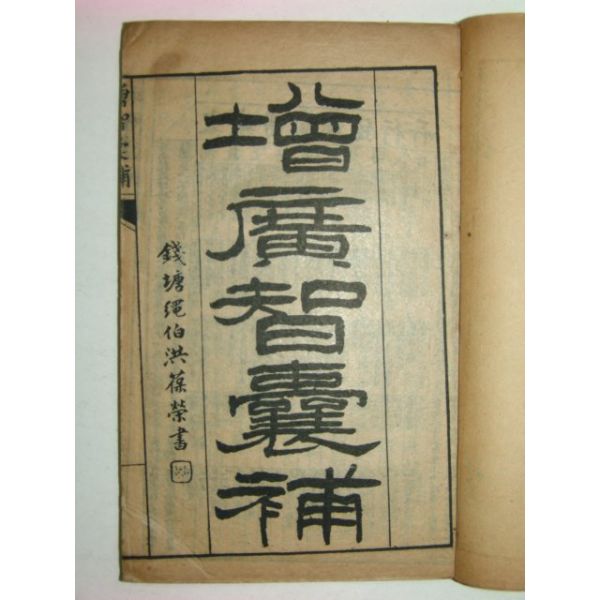 增廣智囊補
錢塘繩伯洪葆榮書